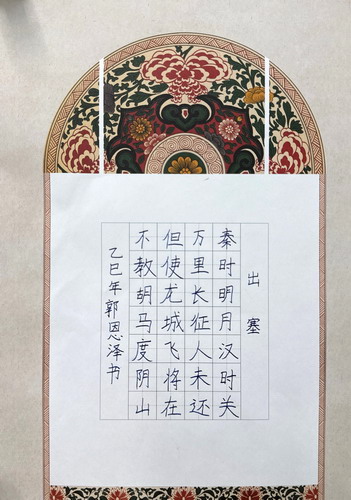 出塞
秦时明月汉时关
万里长征人未还
但使龙城飞将在
不教胡马度阴山
乙巳年郭恩泽书